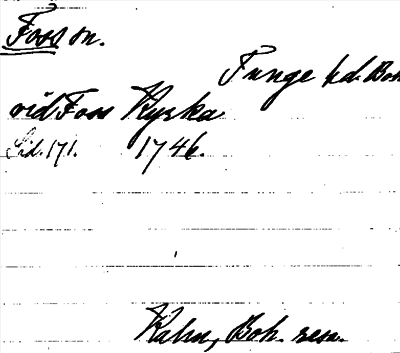 Foss sn.
Tunge hd. Boh
vid Foss Kyrka
Sid. 171. 1746.
Kalm, Boh. resa.